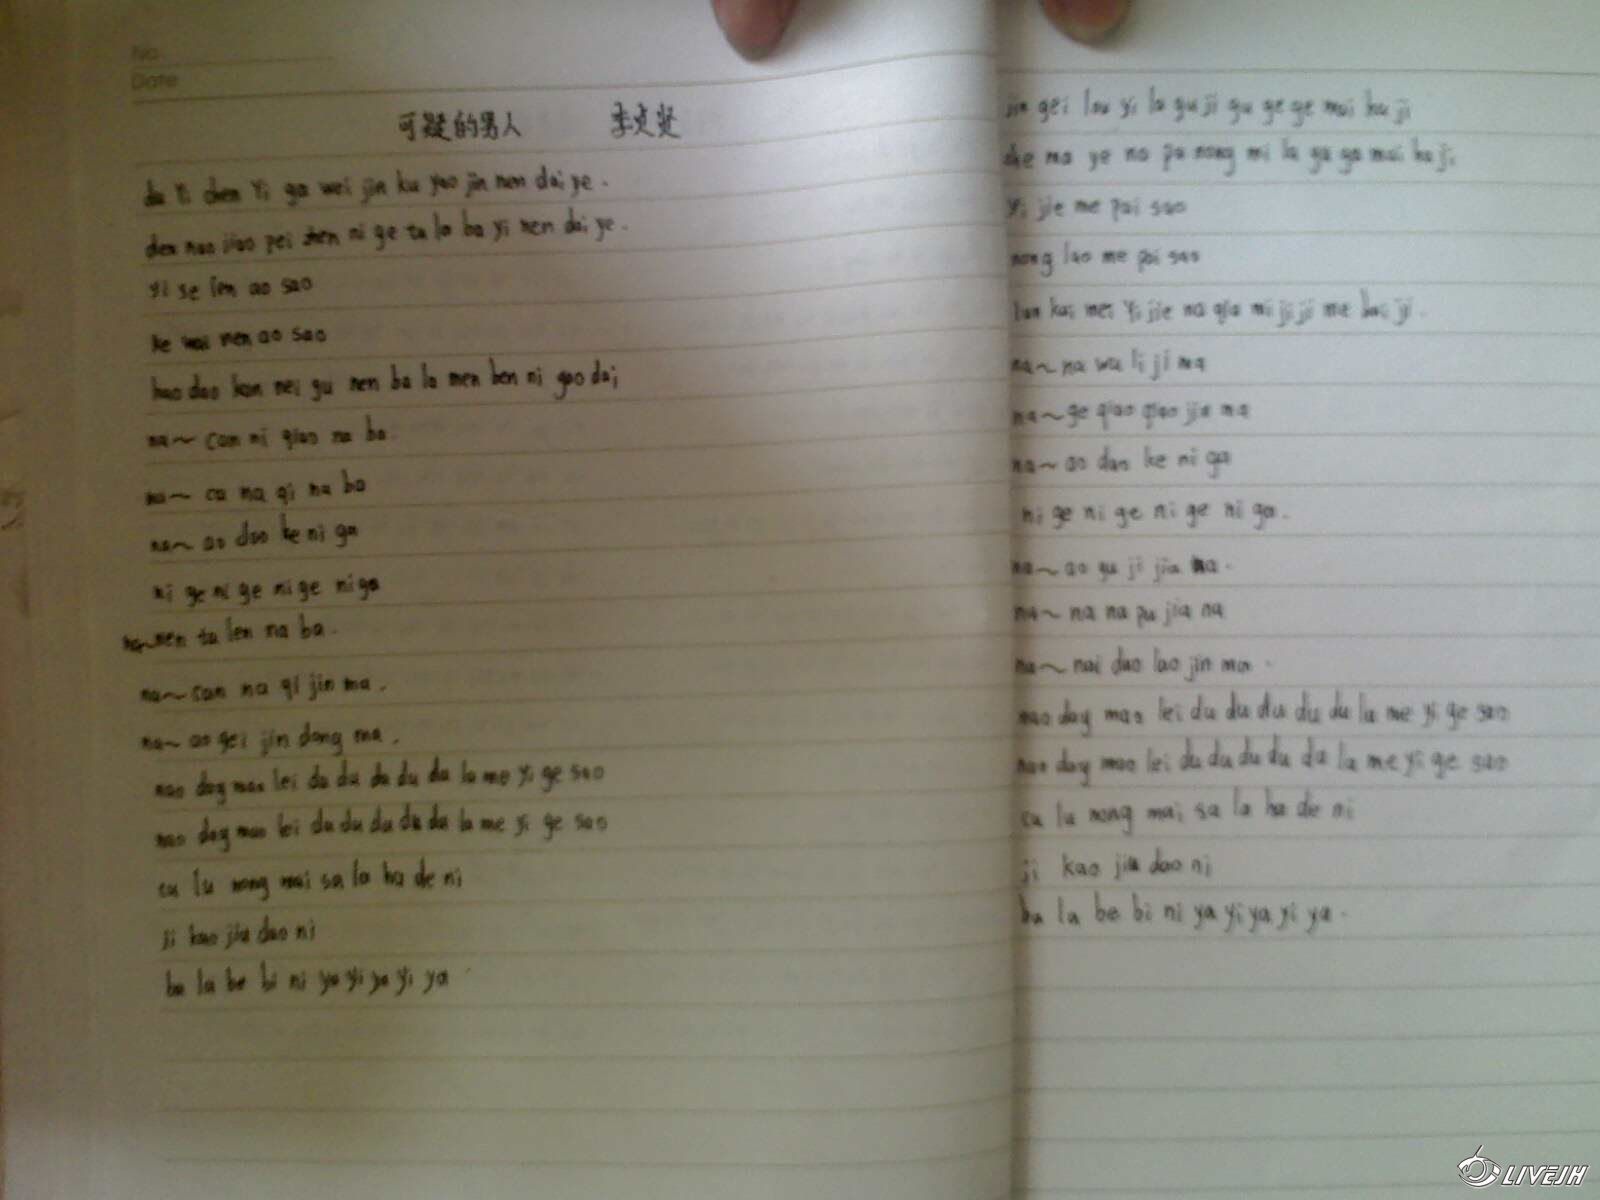 No.
Date
可疑的男人 李贞贤
du yi chen yi ga wei jin ku yao jin nen dai ye.
chen nao jiao pei zhen ni ge tu la ba yi nen dai ye.
yi se len ao sao
ke wai nen ao sao
hao dao kan nei gu nen ba la men ben ni gao dai
na~ can ni qiao na ba.
na~ ca na qi na ba
na~ ao dao ke ni ga
ni ge ni ge ni ge ni ga
na~nen tu len na ba.
na~ can na qi jin ma.
na~ ao gei jin dong ma.
nao day mao lei du du du du du la me yi ge sao
nao day mao lei du du du du du la me yi ge sao
cu lu nong mai sa la ha de ni
ji kao jia dao ni
ba la be bi ni ya yi ya yi ya
jin gei lau yi la gu ji gu ge ge mai ha ji
she ma ye na pa nong mi la ga ga mai ha ji
yi jie me pai sao
nong lao me pai sao
lan kai mei yi jie na qia mi ji ji me bai ji.
na~ na wu li ji ma
na~ ge qiao qiao jia na
na~ ao dao ke ni ga
ni ge ni ge ni ge ni ga.
na~ ao gu ji jia na.
na~ na na pu jia na
na~ nai dao lao jin ma.
nao day mao lei du du du du du la me yi ge sao
nao day mao lei du du du du du la me yi ge sao
cu lu nong mai sa la ha de ni
ji kao jia dao ni
ba la be bi ni ya yi ya yi ya.
LIVEJH